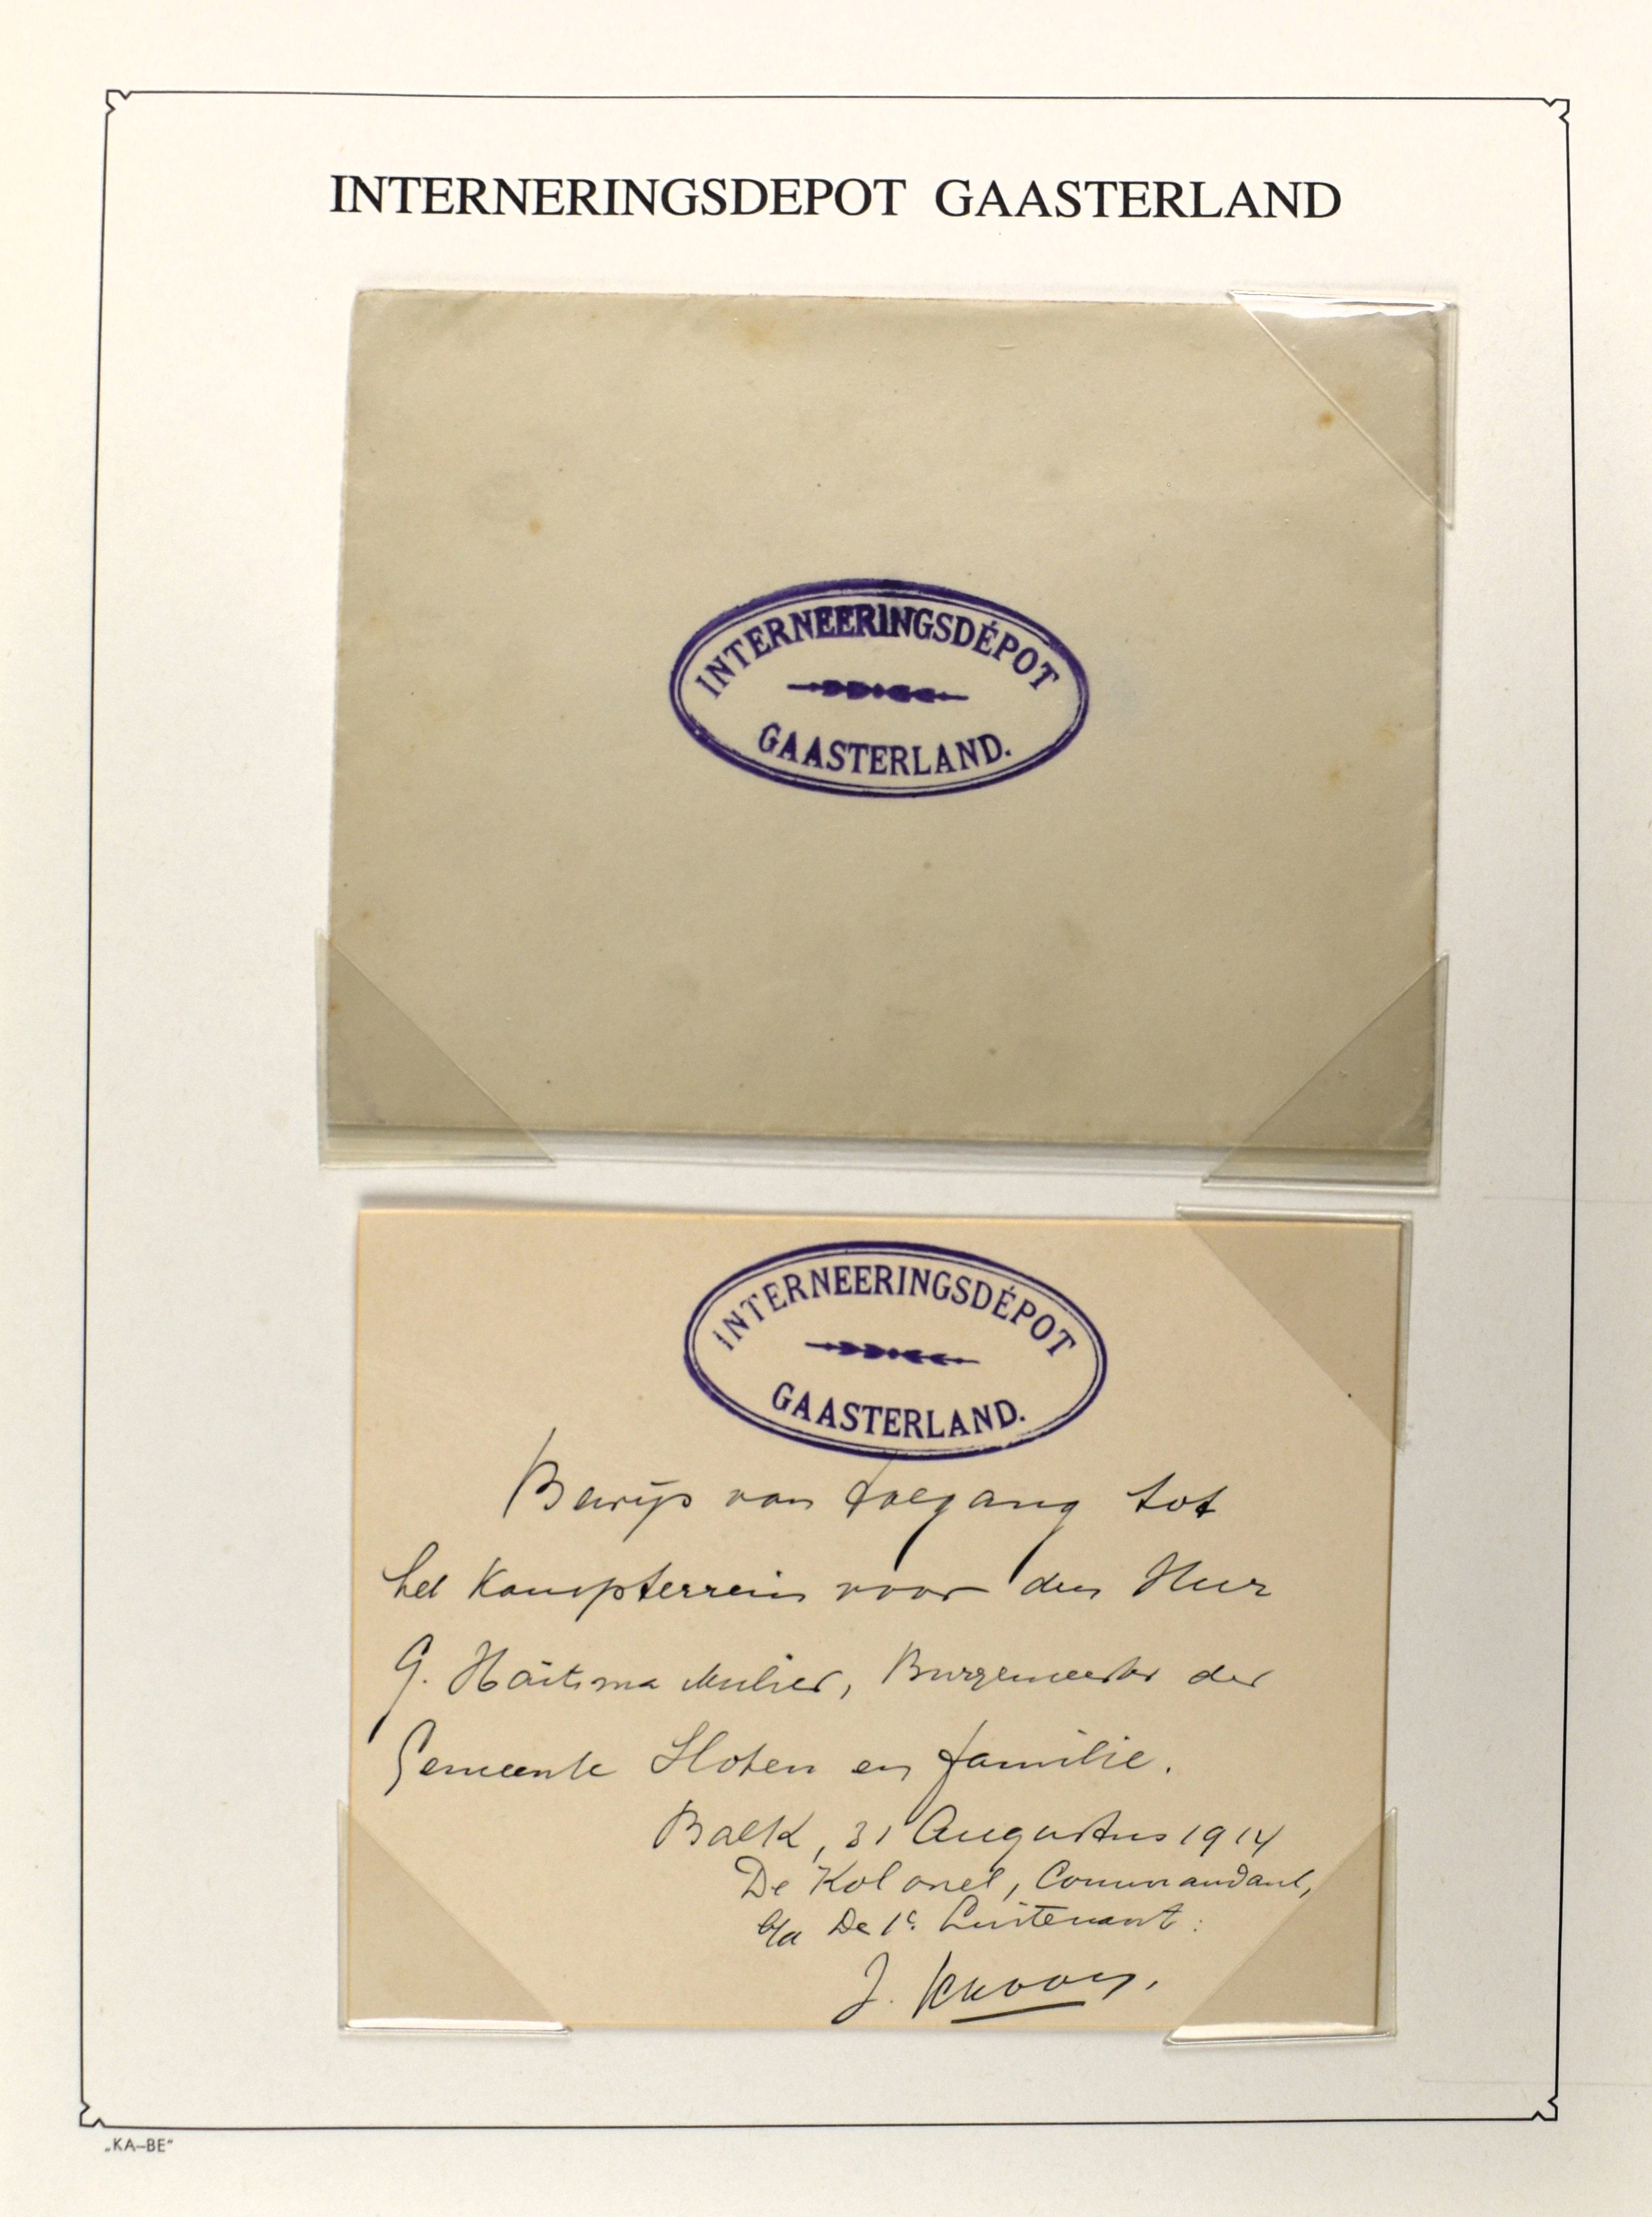 INTERNERINGSDEPOT GAASTERLAND
INTERNEERINGSDÉPOT
GAASTERLAND.
INTERNEERINGSDÉPOT
GAASTERLAND.
Bewijs van toegang tot
het Kampterrein voor den Heer
G. Haitsma Mulier, Burgemeester der
Gemeente Sloten en familie.
Balk, 31 Augustus 1914
De Kolonel, Commandant,
b/a De 1e Luitenant:
J.
„KA–BE"